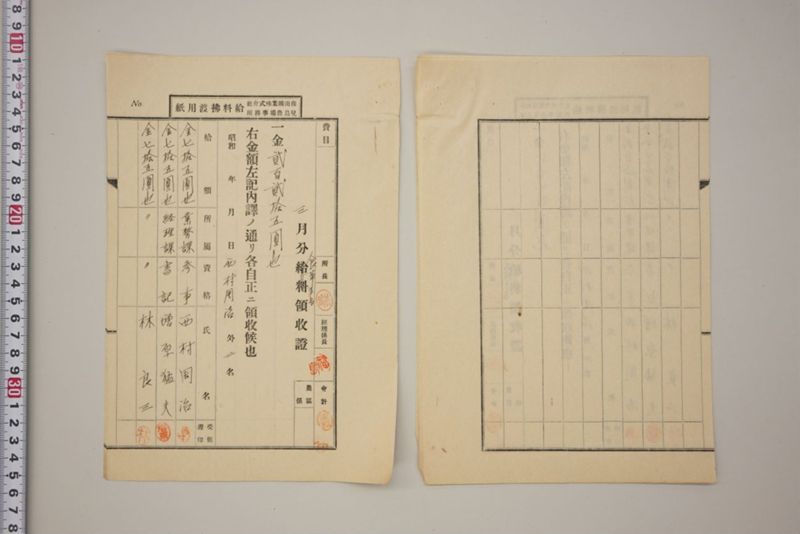 給料拂渡用紙
No.
費目
所長
經理係長
會計
三月分給料領收證
一金貳百貳拾五圓也
右金額左記內譯ノ通リ各自正ニ領收候也
昭和 年 月 日 西村周治 外二名
給額 所屬 資格 氏名 受領者印
金七拾五圓也 業務課 參事 西村周治
金七拾五圓也 經理課 書記 猛夫
金七拾五圓也 〃 〃 林良三
9 10 1 2 3 4 5 6 7 8 9 20 1 2 3 4 5 6 7 8 9 30 1 2 3 4 5 6 7 8